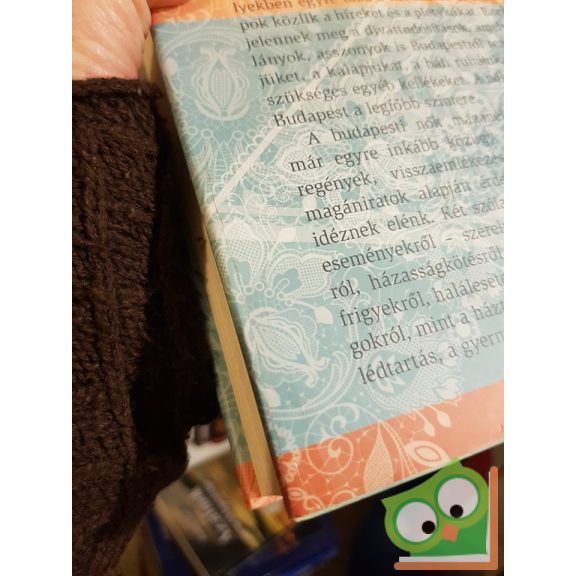 lyekben egyre több a
pok közlik a híreket és a pletykákat. Eze
jelennek meg a divattudósítások,
lányok, asszonyok is Budapestről
jüket, a kalapjukat, a báli
szükséges egyéb kellékeket. A
Budapest a legfőbb színtere.
A budapesti nők magánél
már egyre inkább közügy.
regények, visszaemlékezés
magániratok alapján érde
idéznek elénk. Két
eseményekről – szerel
ról, házasságkötésről
frigyekről, haláleset
gokról, mint a házt
lédtartás, a gyerm